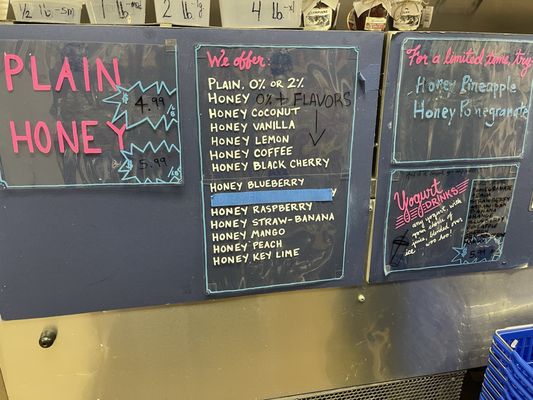 ½ lb.-sm
1 lb
2 lb
4 lb.-xl
PLAIN
4.99
HONEY
5.99
We offer:
PLAIN, 0% OR 2%
HONEY 0% + FLAVORS
HONEY COCONUT
HONEY VANILLA
HONEY LEMON
HONEY COFFEE
HONEY BLACK CHERRY
HONEY BLUEBERRY
HONEY RASPBERRY
HONEY STRAW-BANANA
HONEY MANGO
HONEY PEACH
HONEY KEY LIME
For a limited time, try-
Honey Pineapple
Honey Pomegranate
Yogurt
DRINKS
any yogurt with
your choice of
juice, blended over
ice. woo hoo!
5.99